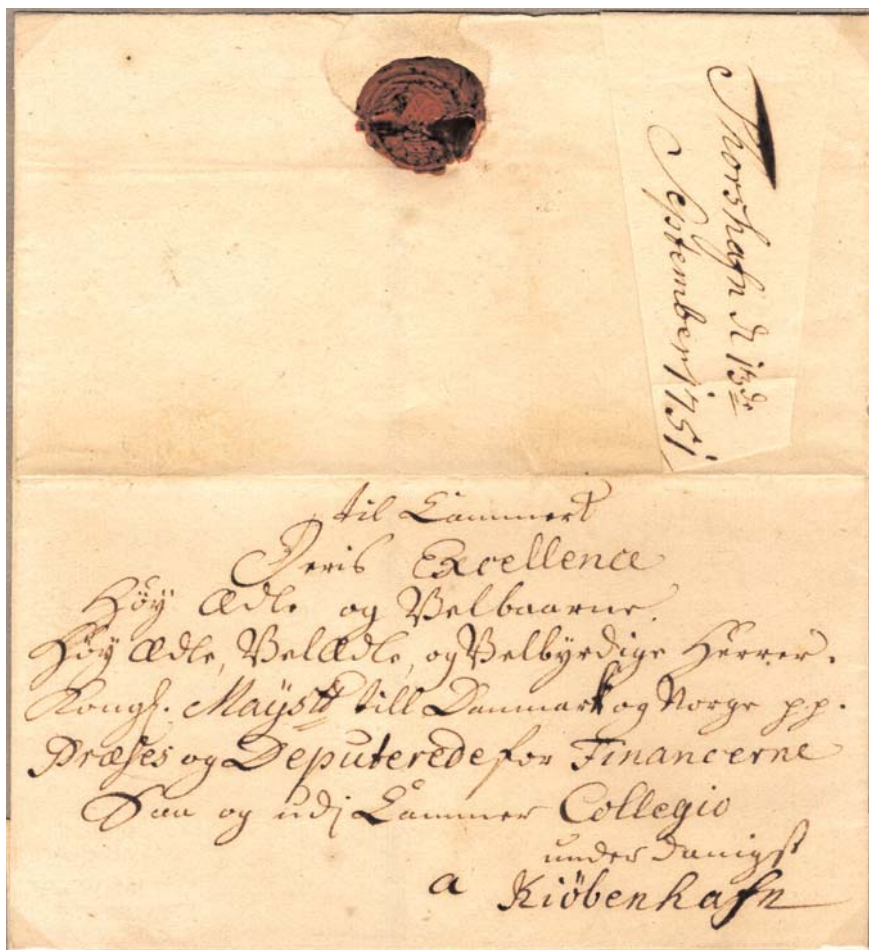 Thorshafn d 13de
September 1751
til Cammert
Deris Excellence
Høy Ædle og Velbaarne
Høy Ædle, Velædle, og Velbyrdige Herrer.
Kongl. Mayst: till Danmark og Norge pp.
Præses og Deputerede for Financerne
Saa og udj Cammer Collegio
underdanigst
a Kiöbenhafn